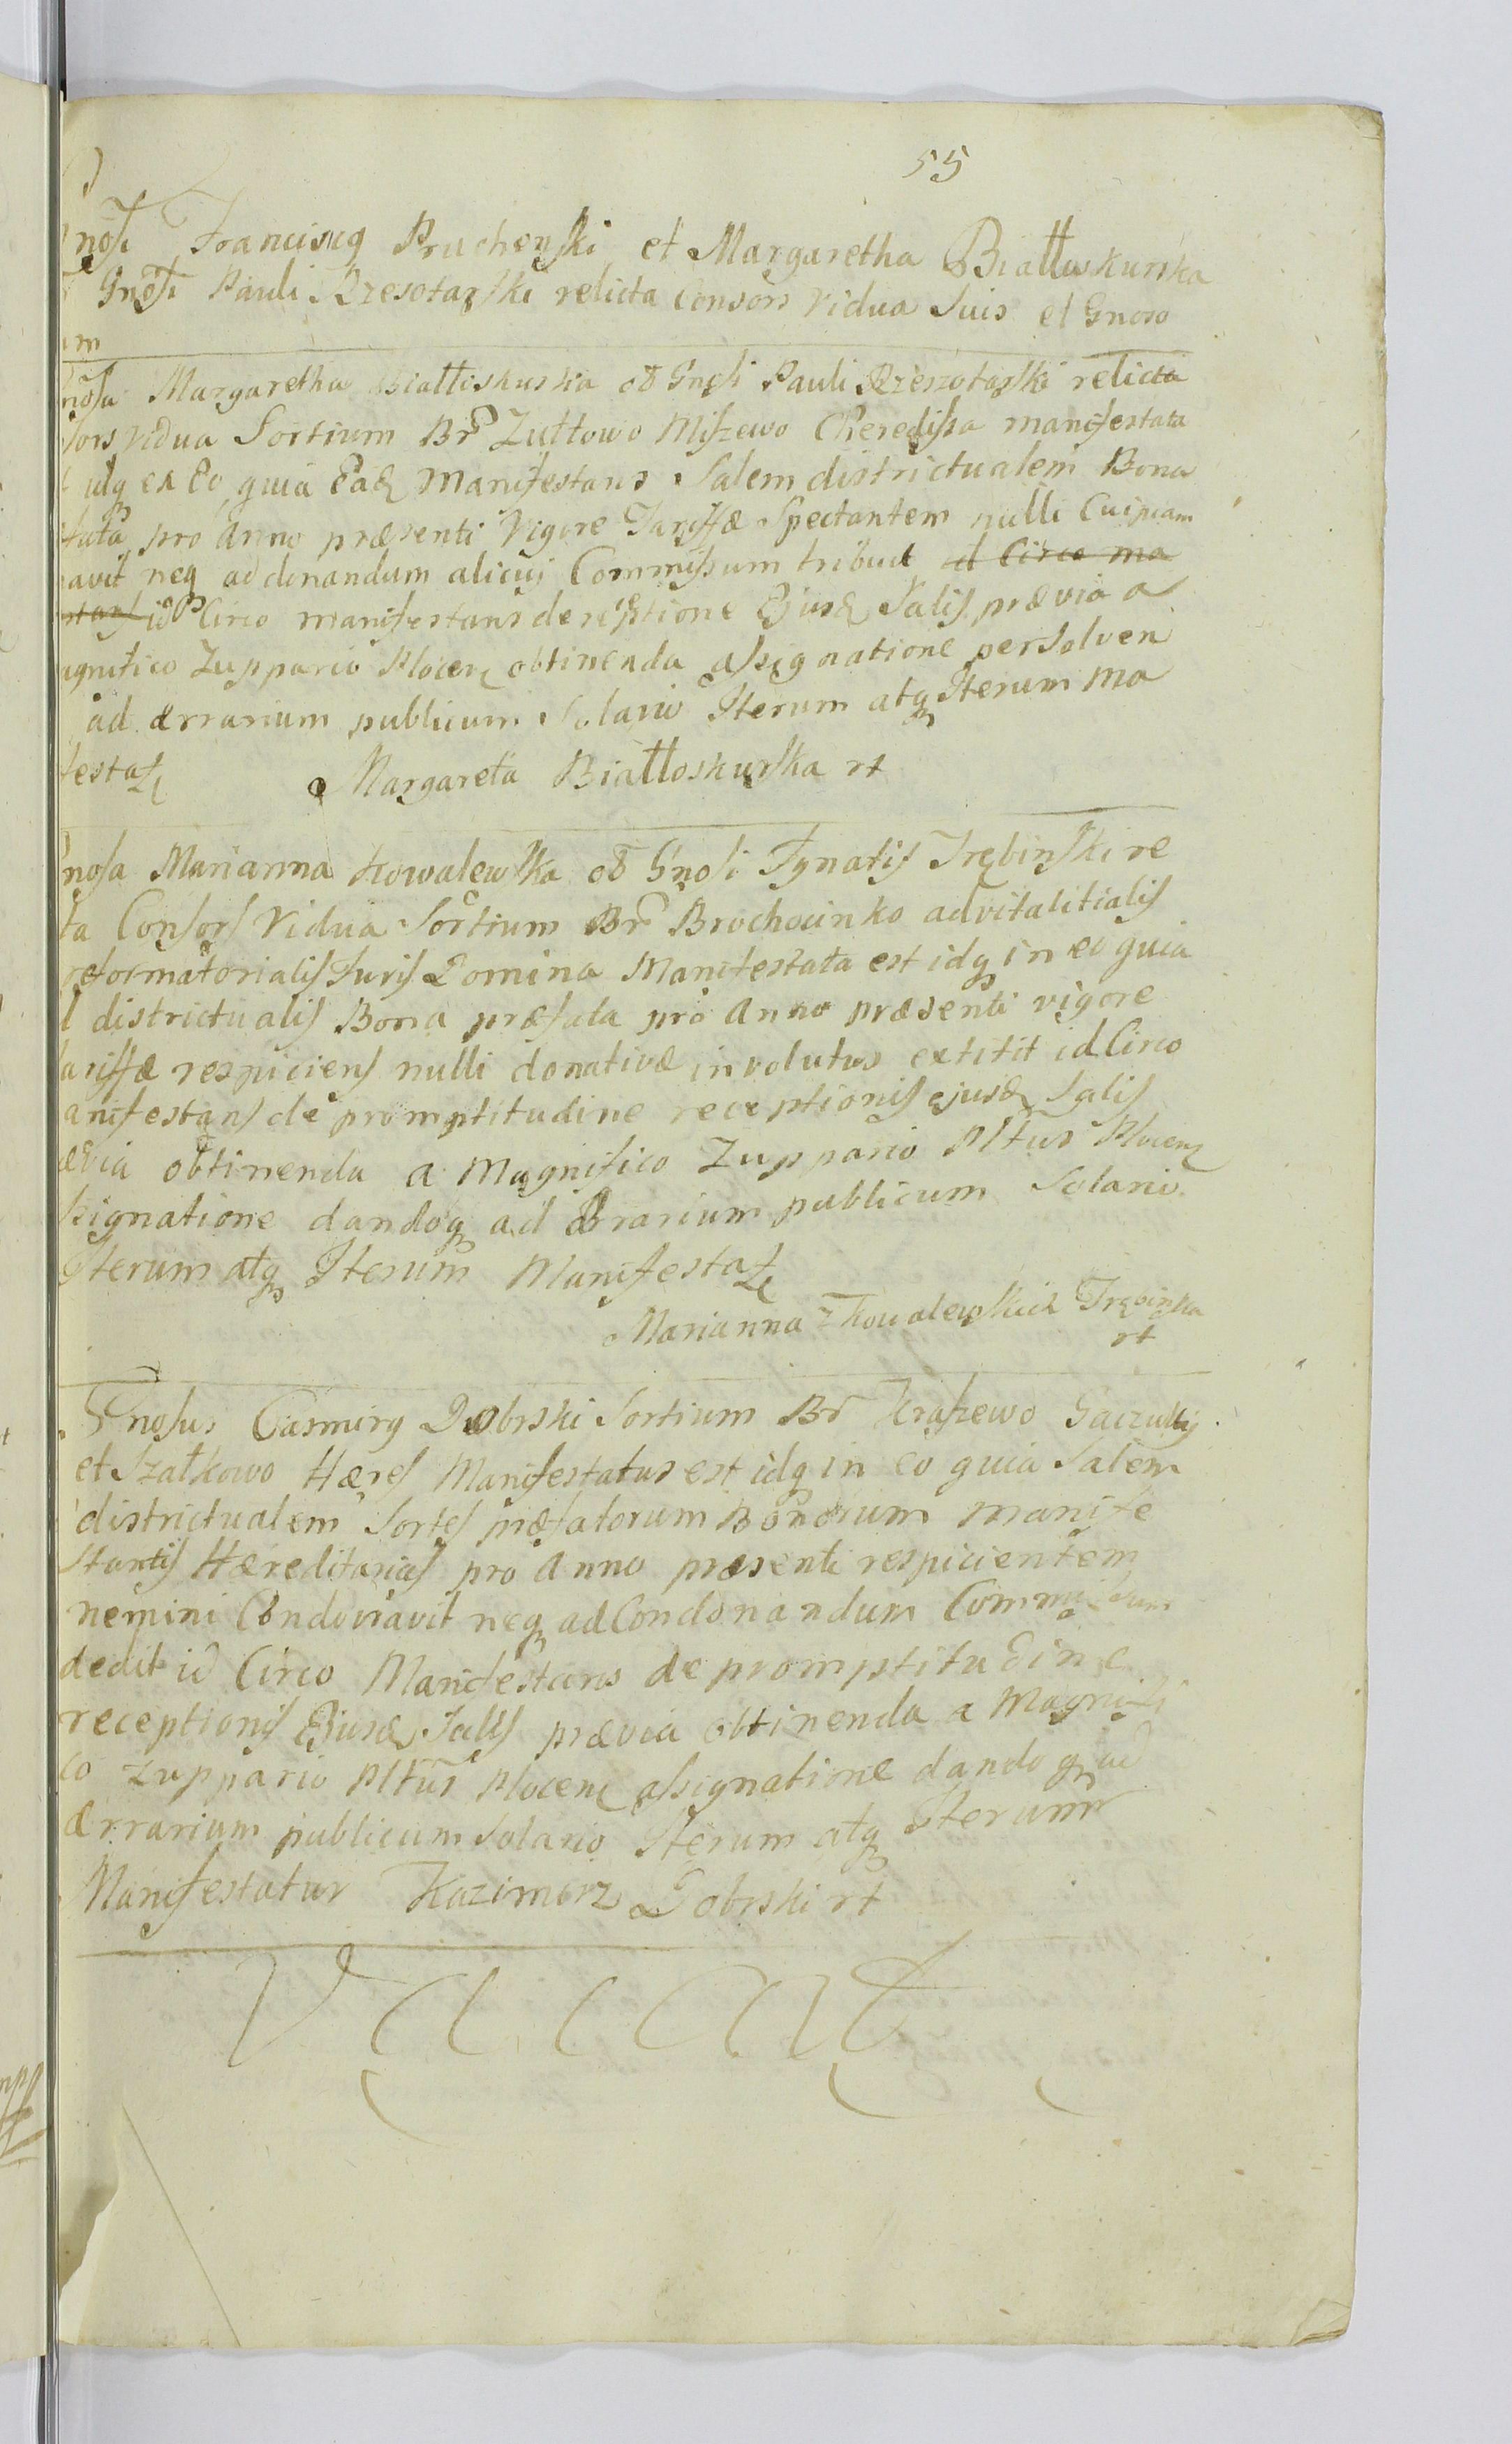 55
nosi Franciscq Pruchenski et Margaretha Białłoskurska
Gnosi Pauli Rzesotarski relicta Consors Vidua Suis et Gnoso
m
nosa Margaretha Białłiskuska oē Gnosi Pauli Rzeszotarski relicta
sors Vidua Sortium Brũ Zułtowo Miszewo Cheredissa manifestata
idq ex Eo quia Eadē Manifestans Salem districtualem Bona
fata pro Anno præsenti Vigore Tariffæ Spectantem nulli Cuipiam
avit neq ad donandum alicui Commissum tribuit id Circo ma
stans id Circo manifestans de reptione Ejusdē Salis prævia a
agnifico Zuppario Plocen obtinenda assignatione persolven
ad ærrarium publicum Solario Iterum atq Iterum ma
festat
Margareta Białłoskurska rt
nosa Marianna Kowalewska oē Gnosi Ignatis Trębinski re
ta Consors Vidua Sortium Brũ Brochocinko advitalitialis
reformatorialis Juris Domina Manifestata est idq in eo quia
l districtualis Bona præfata pro Anno præsenti vigore
ariffæ respiciens nulli donativæ involutus extitit id Circo
anifestans de promptitudine receptionis ejusdē Salis
ævia obtinenda a Magnifico Zuppario Pltus Plocen
signatione dandoq ad Ærarium publicum Solario
Iterum atq Iterum Manifestat
Marianna z Kowalewskich Trębinska
rt
Gnosus Casmirq Dobrski Sortium Br Kraszewo Gaczulki
et Szałkowo Hæres Manifestatus est idq in eo quia Salem
districtualem Sortes præfatorum Bonorum manife
stantis Hæreditarias pro Anno præsenti respicientem
nemini Condonavit neq ad Condonandum Commissum
dedit id Circo Manifestans de promptitudine
receptionis Ejusdē Salis prævia obtinenda a Magnifi
co Zuppario Pltus Plocen assignatione dandoq ad
ærrarium publicum Solario Iterum atq Iterum
Manifestatur Kazimierz Dobrski rt
Vacat